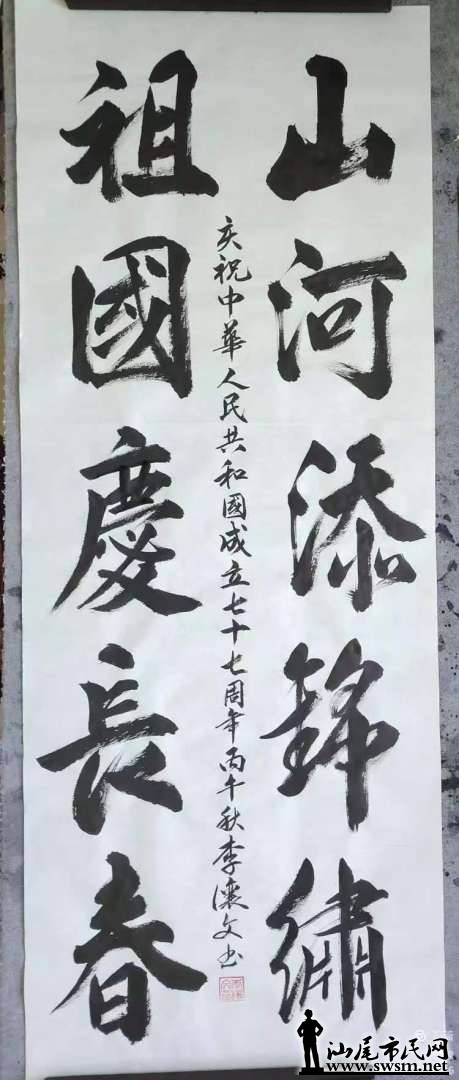 山河添錦繡
祖國慶長春
庆祝中華人民共和國成立七十七周年丙午秋李懷文书
汕尾市民网
www.swsm.net